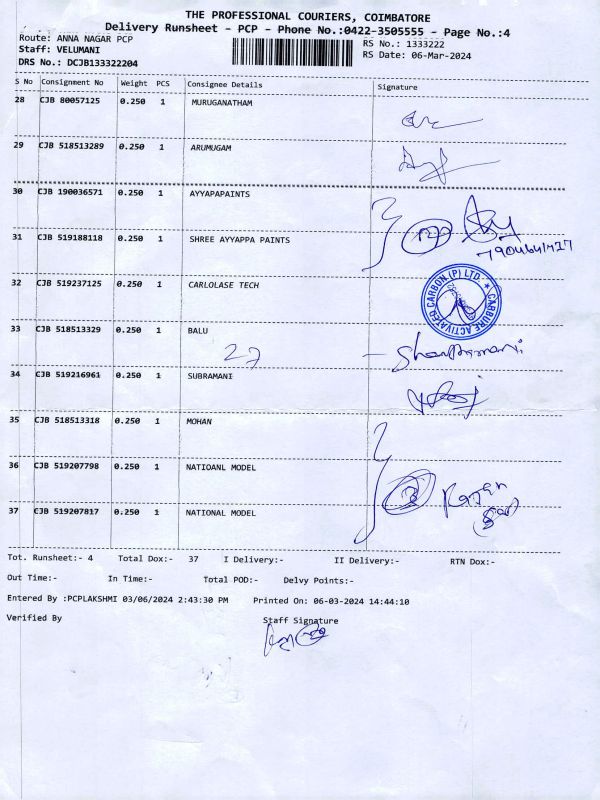 THE PROFESSIONAL COURIERS, COIMBATORE
Delivery Runsheet - PCP - Phone No.:0422-3505555 - Page No.:4
Route: ANNA NAGAR PCP
RS No.: 1333222
Staff: VELUMANI
RS Date: 06-Mar-2024
DRS No.: DCJB133322204
S No Consignment No Weight PCS Consignee Details Signature
28 CJB 80057125 0.250 1 MURUGANATHAM
29 CJB 518513289 0.250 1 ARUMUGAM
30 CJB 190036571 0.250 1 AYYAPAPAINTS
31 CJB 519188118 0.250 1 SHREE AYYAPPA PAINTS
32 CJB 519237125 0.250 1 CARLOLASE TECH
CARBURE ACTIVATED CARBON (P) LTD. ★
33 CJB 518513329 0.250 1 BALU
27
34 CJB 519216961 0.250 1 SUBRAMANI
35 CJB 518513318 0.250 1 MOHAN
36 CJB 519207798 0.250 1 NATIOANL MODEL
37 CJB 519207817 0.250 1 NATIONAL MODEL
Tot. Runsheet:- 4 Total Dox:- 37 I Delivery:- II Delivery:- RTN Dox:-
Out Time:- In Time:- Total POD:- Delvy Points:-
Entered By :PCPLAKSHMI 03/06/2024 2:43:30 PM Printed On: 06-03-2024 14:44:10
Verified By Staff Signature